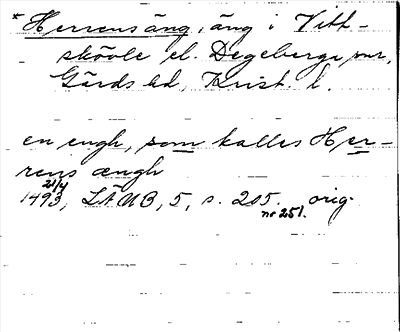 * Herrens äng, äng i Vitt-
skövle el. Degeberga snr,
Gärds hd, Krist. l.
en engh, som kalles Her-
rens ængh
21/4
1493, LÄUB, 5, s. 205. orig.
nr 251.